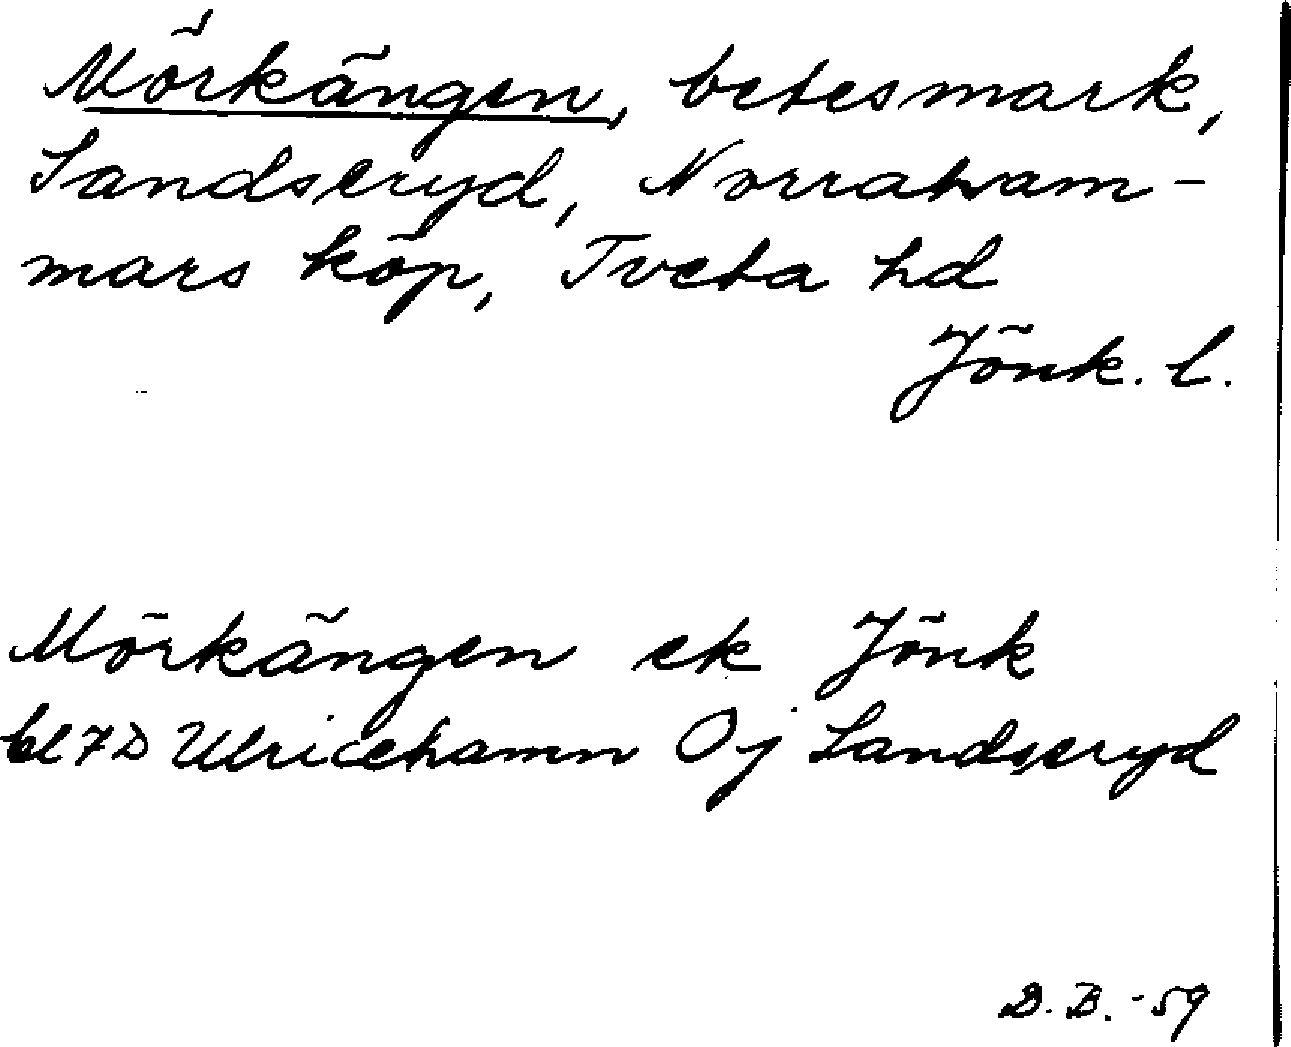 Mörkängen, betesmark,
Sandseryd, Norraham-
mars köp, Tveta hd
Jönk. l.
Mörkängen ek Jönk
bl 7D Ulricehamn Öj Sandseryd
D. B. -59